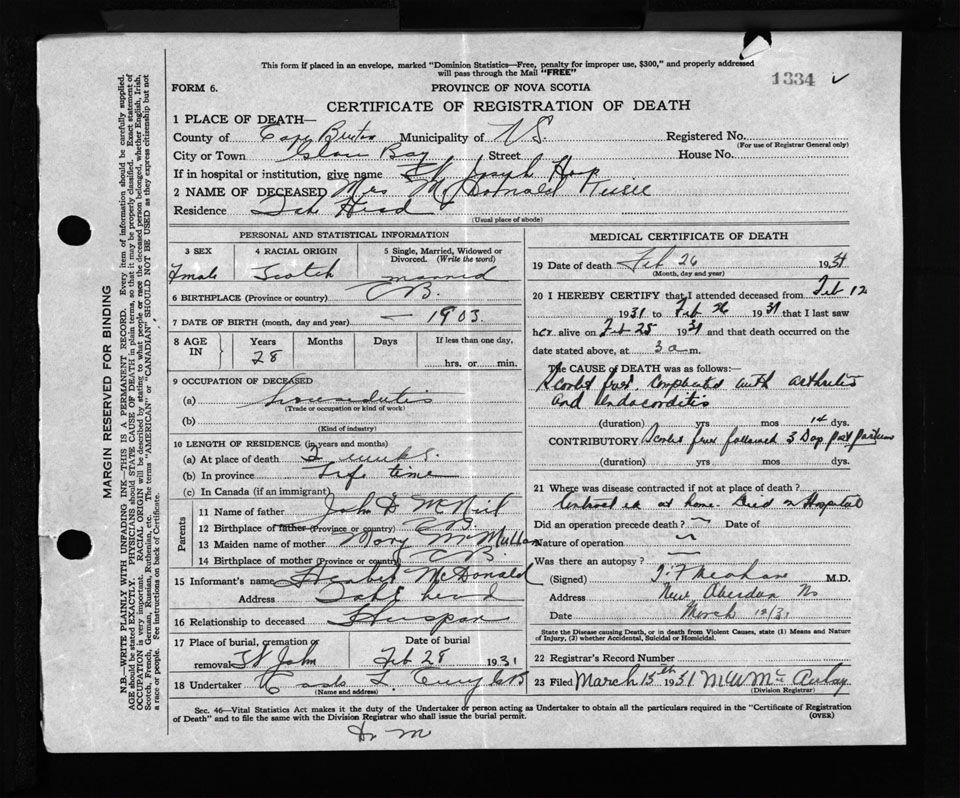 This form if placed in an envelope, marked "Dominion Statistics—Free, penalty for improper use, $300," and properly addressed
will pass through the Mail "FREE"
1334
FORM 6.
PROVINCE OF NOVA SCOTIA
CERTIFICATE OF REGISTRATION OF DEATH
1 PLACE OF DEATH—
County of Cape Breton Municipality of N S. Registered No.
(For use of Registrar General only)
City or Town Glace Bay Street House No.
If in hospital or institution, give name St Joseph Hosp
2 NAME OF DECEASED Mrs McDonald
Residence Head
(Usual place of abode)
PERSONAL AND STATISTICAL INFORMATION
3 SEX
4 RACIAL ORIGIN
5 Single, Married, Widowed or Divorced. (Write the word)
Female Scotch married
6 BIRTHPLACE (Province or country) C B.
7 DATE OF BIRTH (month, day and year) — 1903
8 AGE IN
Years Months Days If less than one day,
28
hrs. or min.
9 OCCUPATION OF DECEASED
(a) Houseduties
(Trade or occupation or kind of work)
(b)
(Kind of industry)
10 LENGTH OF RESIDENCE (in years and months)
(a) At place of death 2 weeks.
(b) In province Life time
(c) In Canada (if an immigrant)
Parents
11 Name of father John D McNeil
12 Birthplace of father (Province or country) C B.
13 Maiden name of mother Mary McMullan
14 Birthplace of mother (Province or country) C B
15 Informant's name McDonald
Address Head
16 Relationship to deceased
17 Place of burial, cremation or removal St John
Date of burial Feb 28 1931
18 Undertaker
(Name and address)
MEDICAL CERTIFICATE OF DEATH
19 Date of death Feb 26 1931
(Month, day and year)
20 I HEREBY CERTIFY that I attended deceased from Feb 12
1931 to Feb 26 1931 that I last saw
her alive on Feb 25 1931 and that death occurred on
date stated above, at 3 a m.
The CAUSE of DEATH was as follows:—
Scarlet fever. Complicated with arthritis
and endocarditis
(duration) yrs mos 14 dys.
CONTRIBUTORY Scarlet fever followed 3 Days post partum
(duration) yrs mos dys.
21 Where was disease contracted if not at place of death?
Contracted at home. Died in Hospital
Did an operation precede death? Date of
Nature of operation
Was there an autopsy?
(Signed) M.D.
Address New Aberdeen NS
Date March 12/31
State the Disease causing Death, or in death from Violent Causes, state (1) Means and Nature
of Injury, (2) whether Accidental, Suicidal or Homicidal.
22 Registrar's Record Number
23 Filed March 15th 1931 M W McAulay
(Division Registrar)
Sec. 46—Vital Statistics Act makes it the duty of the Undertaker or person acting as Undertaker to obtain all the particulars required in the "Certificate of Registration
of Death" and to file the same with the Division Registrar who shall issue the burial permit.
(OVER)
MARGIN RESERVED FOR BINDING
N.B.—WRITE PLAINLY WITH UNFADING INK—THIS IS A PERMANENT RECORD. Every item of information should be carefully supplied.
AGE should be stated EXACTLY. PHYSICIANS should STATE CAUSE OF DEATH in plain terms, so that it may be properly classified. Exact statement of
OCCUPATION is very important. RACIAL ORIGIN will be described by stating to what people or race the deceased person belonged, whether English, Irish,
Scotch, French, German, Russian, Ruthenian, etc. The terms "AMERICAN" or "CANADIAN" SHOULD NOT BE USED as they express citizenship but not
a race or people. See instructions on back of Certificate.